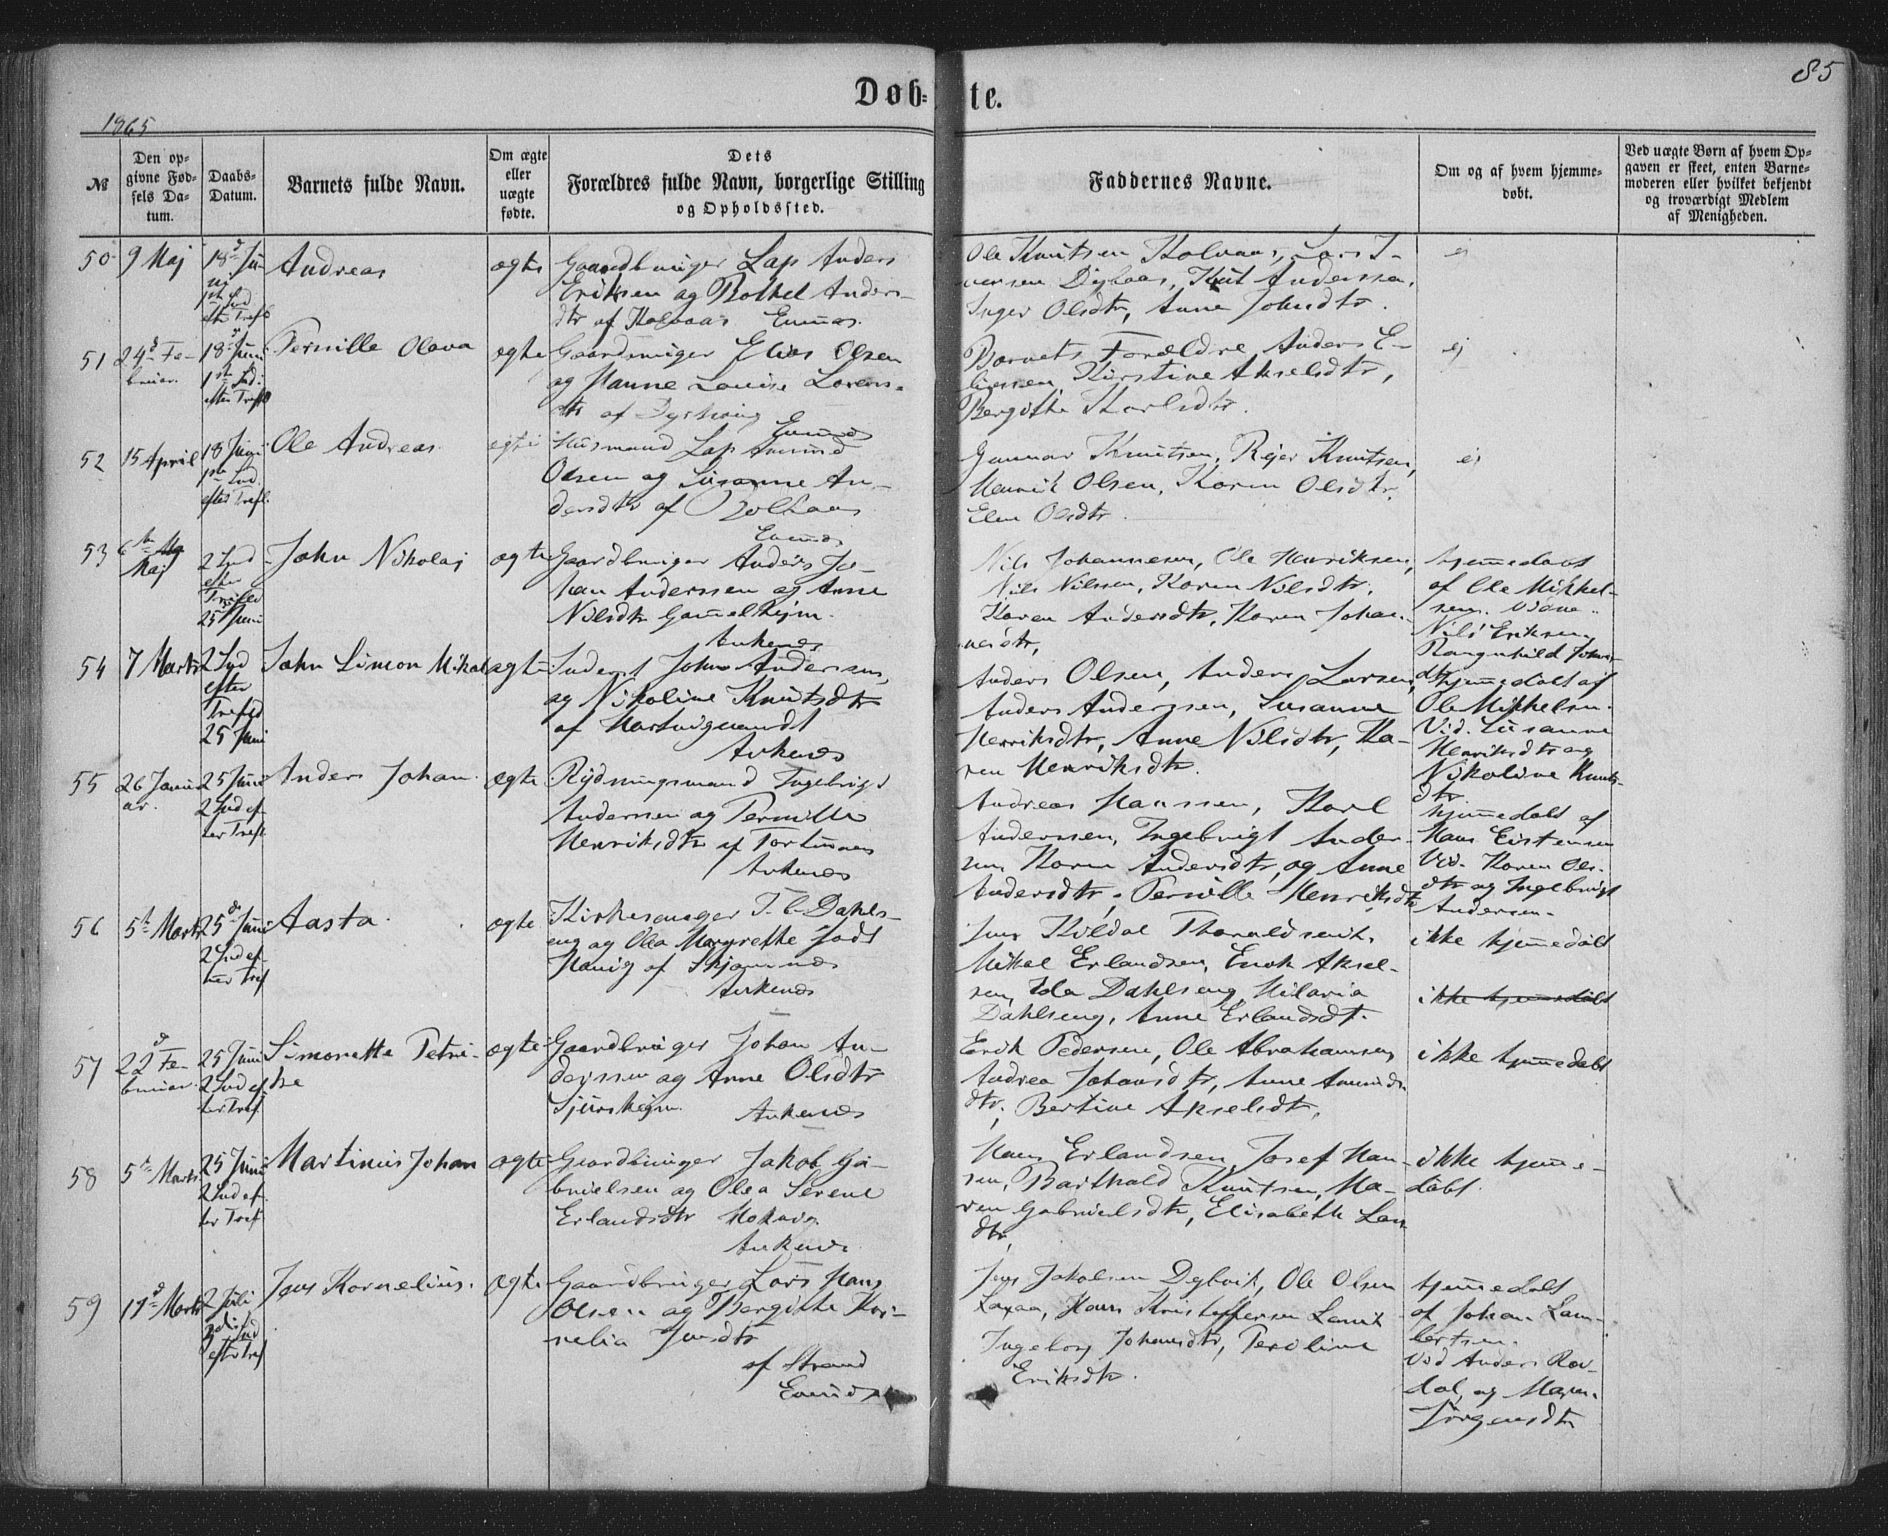 85
Døb= te.
1865
№
Den op=
givne Fød=
sels Da=
tum.
Daabs=
Datum.
Barnets fulde Navn.
Om ægte
eller
uægte
fødte.
Dets
Forældres fulde Navn, borgerlige Stilling
og Opholdssted.
Faddernes Navne.
Om og af hvem hjemme=
døbt.
Ved uægte Børn af hvem Op=
gaven er skeet, enten Barne=
moderen eller hvilket bekjendt
og troværdigt Medlem
af Menigheden.
50
9 Maj
18 Ju-
ni
Andreas
ægte
Gaardbruger Lap Anders
Eriksen og Bolhel Anders-
dtr af Kolvaas
Ole Knutsen Kolvaas, Lars I-
versen Knut Anderssen,
Inger Olsdtr, Anne Johnsdtr.
ej
51
24 Fe-
bruar.
18 Juni
1 Snd:
efter Tref
Pernille Olava
egte
Gaardbruger Elias Olsen
og Hanne Louise Lorens-
dtr af
Barnets Forældre Anders E-
liassen, Kirstine Akselsdtr,
Bergithe Karlsdtr.
ej
52
15 April
18 Juni
efter Tref.
Ole Andreas
egte
Husmand Lap Amund
Olsen og Susanne An-
dersdtr af
Gunnar Knutsen, Rejer Knutsen,
Henrik Olsen, Karen Olsdtr,
Elen Olsdtr.
ej
53
6 Maj
2 Snd
efter
Trefld
25 Juni
John Nikolaj
ægte
Gaardbruger Anders Jo-
han Anderssen og Anne
Nilsdtr Gammelhejm.
Ankenes
Nils Johannesen, Ole Henriksen,
Nils Nilssen, Karen Nilsdtr,
Karen Andersdtr, Karen Johan-
nesdtr,
hjemmedøbt
af Ole Mikkel-
sen. Vidne
Nils Eriksen,
Ragnhild Johns-
dtr
54
7 Marts
2 Snd
efter
Trefld
25 Juni
John Simon Mikal
ægte
Inderst John Anderssen,
og Nikoline Knutsdtr
af Hartvigsandt
Ankenes
Anders Olsen, Anders Larsen,
Anders Anderssen, Susanne
Henriksdtr, Anne Nilsdtr, Ka-
ren Henriksdtr.
hjemmedøbt af
Ole Mikkelsen.
Vid. Susanne
Henriksdtr og
Nikoline Knuts-
dtr
55
26 Janu-
ar.
25 Juni
2 Snd ef-
ter Tref
Anders Johan
ægte
Rydningsmand Ingebrigt
Anderssen og Pernille
Henriksdtr af
Ankenes
Andreas Hanssen, Karl
Anderssen, Ingebrigt Anders-
sen, Karen Andersdtr, og Anne
Andersdtr, Pernille Henriksdtr
hjemmedøbt af
Hans Eistensen
Vid. Karen Ols-
dtr og Ingebrigt
Andersen.
56
5 Marts
25 Juni
2 Snd ef-
ter Tref
Aasta
ægte
Kirkesanger T. C. Dahls-
eng og Olea Margrethe Jodt
Hanig af Skjomnes
Ankenes
Jens Kildal
Mikal Erlandsen, Enok Aksel-
sen, Ida Dahlseng, Hilaria
Dahlseng, Anne Erlandsdt.
ikke hjemmedøbt
ikke hjemmedøbt
57
22 Fe-
bruar.
25 Juni
2 Snd ef-
ter Tref
Simonette Petri-
ne
ægte
Gaardbruger Johan An-
derssen og Anne Olsdtr
Sjurshejm.
Ankenes
Erik Pedersen, Ole Abrahamsen,
Andrea Johansdtr, Anne Amunds-
dtr, Bertine Akselsdtr,
ikke hjemmedøbt
58
5 Marts
25 Juni
2 Snd ef-
ter Tref
Martinus Johan
ægte
Gaardbruger Jakob Ga-
brielsen og Olea Serene
Erlandsdtr
Ankenes
Hans Erlandsen Josef Han-
sen, Barthold Knutsen, Ma-
ren Gabrielsdtr, Elisabeth Lars
dtr
ikke hjemme-
døbt.
59
Marts
2 Juli
3 Snd
efter Tref
Jens Kornelius.
ægte
Gaardbruger Lars Hans
Olsen og Bergitte Kor-
nelia Jensdtr
af Strand
Jens Jakobsen Dybvik, Ole Olsen
Laxaa, Hans Kristoffersen
Ingeborg Johansdtr, Peroline
Eriksdtr.
hjemmedøbt
af Johan Lam-
bertsen.
Vid Anders
og Maren
Jørgensdtr